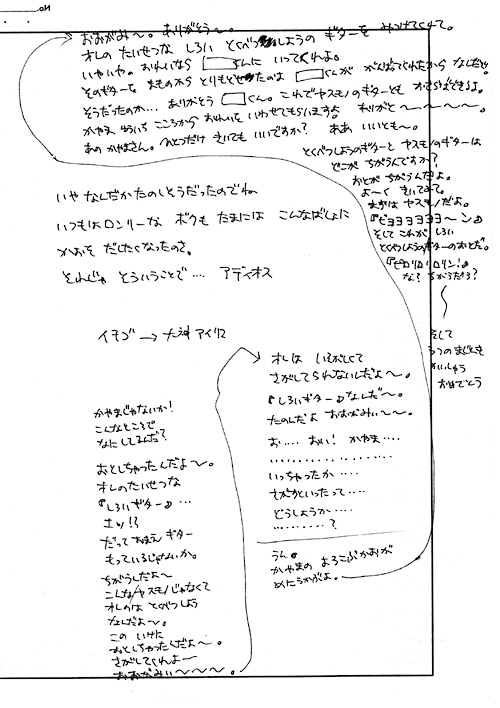 No.
おおがみ〜。ありがとう〜。
オレの たいせつな しろい とくべつしようの ギターを みつけてくれて。
いやいや。おれいなら □くんに いってくれよ。
そのギターを まものから とりもどせたのは □くんが がんばってくれたから なんだぜ
そうだったのか… ありがとう □くん。これでヤスモノのギターとも
かやま ゆういち こころから おれいを いわせてもらいますよ ありがと〜〜〜〜。
あの かやまさん。ひとつだけ きいても いいですか? ああ いいとも〜。
とくべつしようのギターと ヤスモノのギターは
どこが ちがうんですか?
おとが ちがうんだよ。
よ〜く きいてみて。
まずは ヤスモノだよ。
『ビヨヨヨヨヨヨ〜ン』
そして これが しろい
とくべつしようのギターのおとだ。
『ピロリロリロリン!』
な? ちがうだろ?
いや なんだか たのしそうだったのでね
いつもは ロンリーな ボクも たまには こんなばしょに
かおを だしたくなったのさ。
それじゃ そういうことで…. アディオス
そして
つの まじとも
かいしゅう
おめでとう
イチゴ → 大神 アイリス
かやまじゃないか!
こんなところで
なにしてるんだ?
おとしちゃったんだよ〜。
オレの たいせつな
『しろいギター』…
エッ!?
だって おまえ ギター
もっているじゃないか。
ちがうんだよ〜
こんなヤスモノじゃなくて
オレのは とくべつしよう
なんだよ〜。
この いけに
おとしちゃったんだよ〜。
さがしてくれよ〜
おおがみぃ〜〜〜〜。
オレは いそがしくて
さがしてられないんだよ〜。
『しろいギター』なんだ〜。
たのんだよ おおがみぃ〜〜。
お…. おい! かやま….
………………
いっちゃったか ….
さがせといったって ….
どうしようか ….
…………?
うん。
かやまの よろこぶかおが
めにうかぶよ。